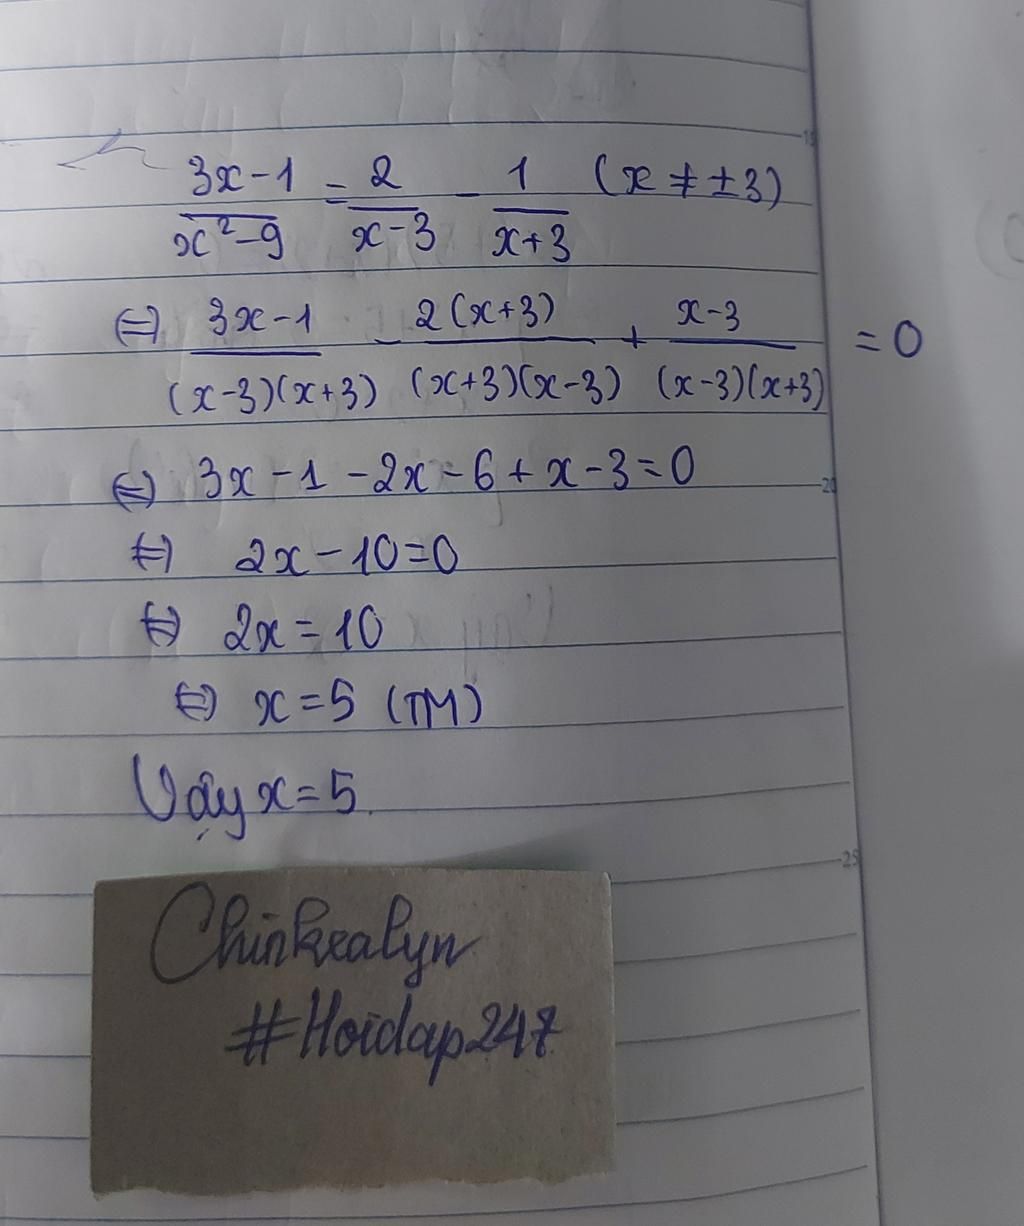 3x-1/x²-9 = 2/x-3 - 1/x+3 (x ≠ ±3)
⇔ 3x-1/(x-3)(x+3) - 2(x+3)/(x+3)(x-3) + x-3/(x-3)(x+3) = 0
⇔ 3x-1-2x-6+x-3=0
⇔ 2x-10=0
⇔ 2x=10
⇔ x=5 (TM)
Vậy x=5.
15
20
25
Chinkealyn
#Hoidap247